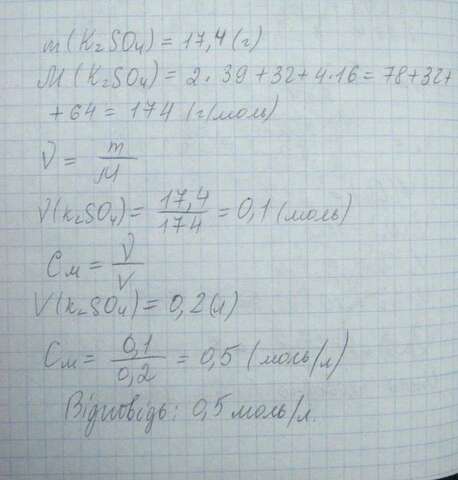 m(K₂SO₄) = 17,4 (г)
M(K₂SO₄) = 2·39+32+4·16 = 78+32+
+64 = 174 (г/моль)
ν = m/M
ν(K₂SO₄) = 17,4/174 = 0,1 (моль)
Cм = ν/V
V(K₂SO₄) = 0,2 (л)
Cм = 0,1/0,2 = 0,5 (моль/л)
Відповідь: 0,5 моль/л.